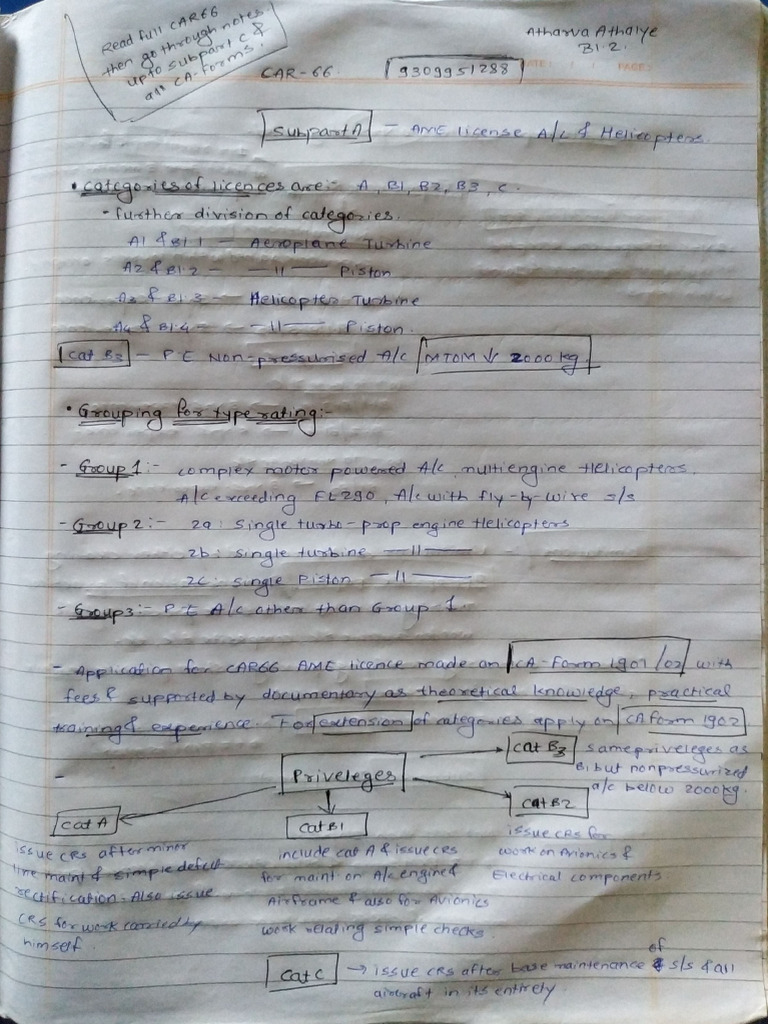 Read full CAR66
then go through notes
upto subpart C &
all CA-Forms.
Atharva Athalye
B1.2.
CAR-66. 9309951288
DATE: / / PAGE:
Subpart A - AME license A/c & Helicopters.
• Categories of licences are:- A, B1, B2, B3, C.
- further division of categories.
A1 & B1.1 — Aeroplane Turbine
A2 & B1.2 — —11— Piston
A3 & B1.3 — Helicopter Turbine
A4 & B1.4 — —11— Piston.
Cat B3 — P E Non-pressurised A/c MTOM ↓ 2000 kg.
• Grouping for type rating:-
- Group 1:- complex motor powered A/c, multiengine Helicopters,
A/c exceeding FL290, A/c with fly-by-wire s/s
- Group 2:- 2a: Single turbo-prop engine Helicopters
2b: single turbine —11—
2c: single Piston —11—
- Group 3:- P E A/c other than Group 1.
- Application for CAR66 AME licence made on CA-Form 1901/02 with
fees & supported by documentary as theoretical knowledge, practical
training & experience. For extension of categories apply on CA form 1902
- Priveleges
Cat B3 same priveleges as
B1 but nonpressurized
a/c below 2000kg.
Cat A
issue CRS after minor
line maint & simple defect
rectification. Also issue
CRS for work carried by
himself.
Cat B1
include cat A & issue CRS
for maint on A/c engine &
Airframe & also for Avionics
work relating simple checks.
Cat B2
issue CRS for
work on Avionics &
Electrical components
Cat C → issue CRS after base maintenance of s/s & all
aircraft in its entirety.